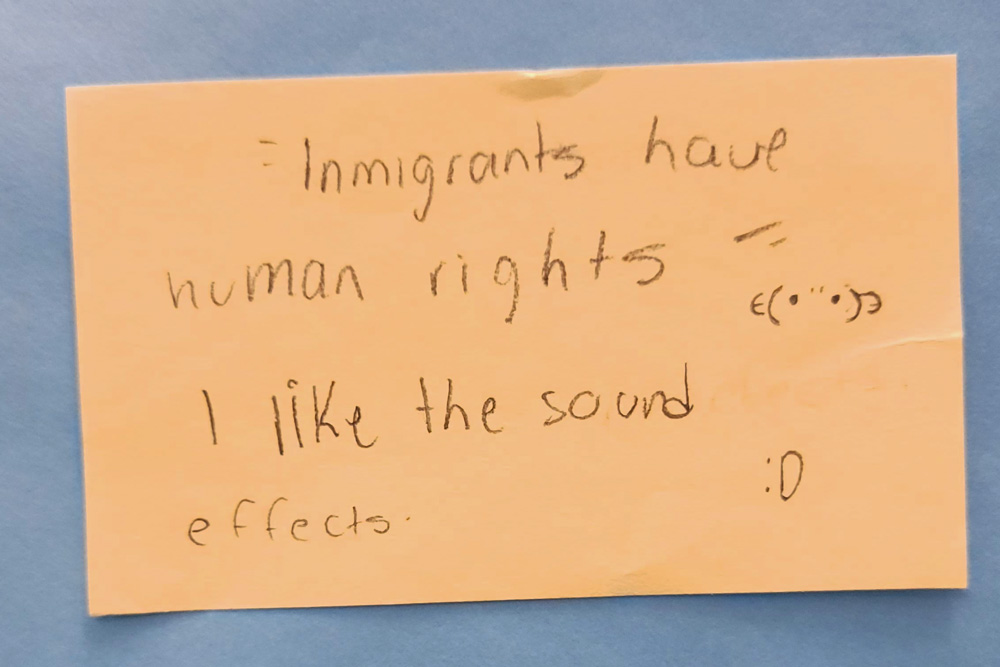 = Inmigrants have
human rights =
ε(• '' •)з
I like the sound
:D
effects.